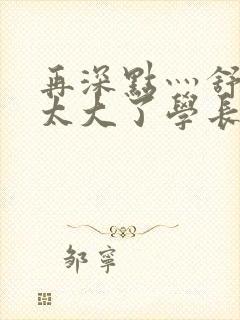 再深點灬舒
太大了學長
邹寧